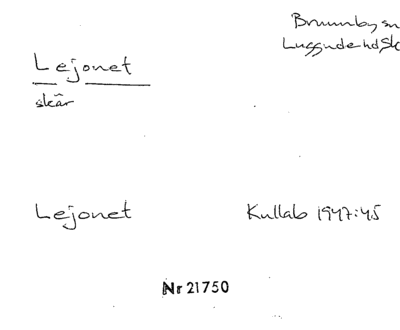 Brunnby sn
Luggude hd Sk
Lejonet
skär
Lejonet Kullab 1947:45
Nr 21750